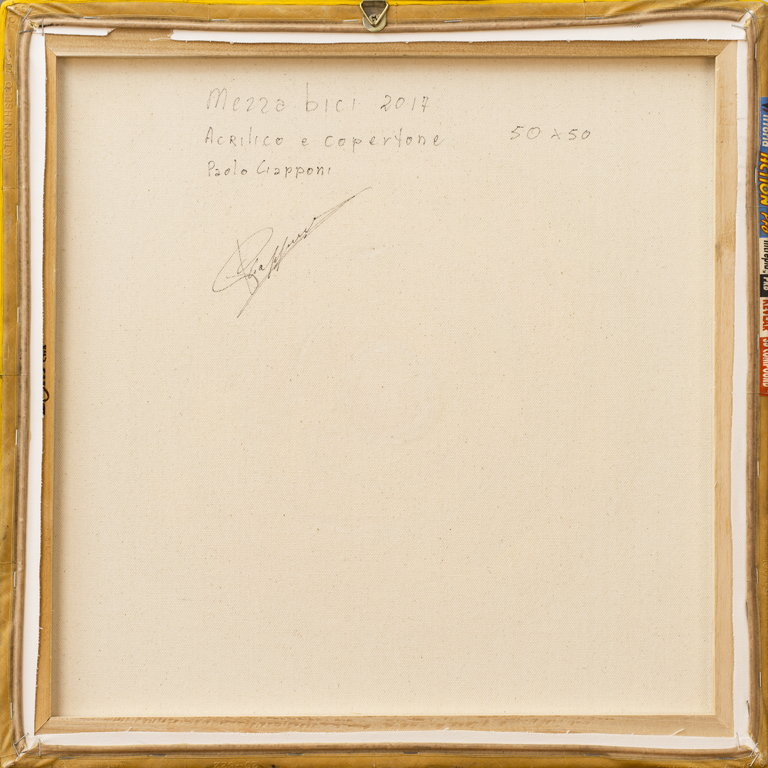 Mezza bici 2017
Acrilico e copertone 50 x 50
Paolo Giapponi
Giapponi
VITTORIA
ACTION